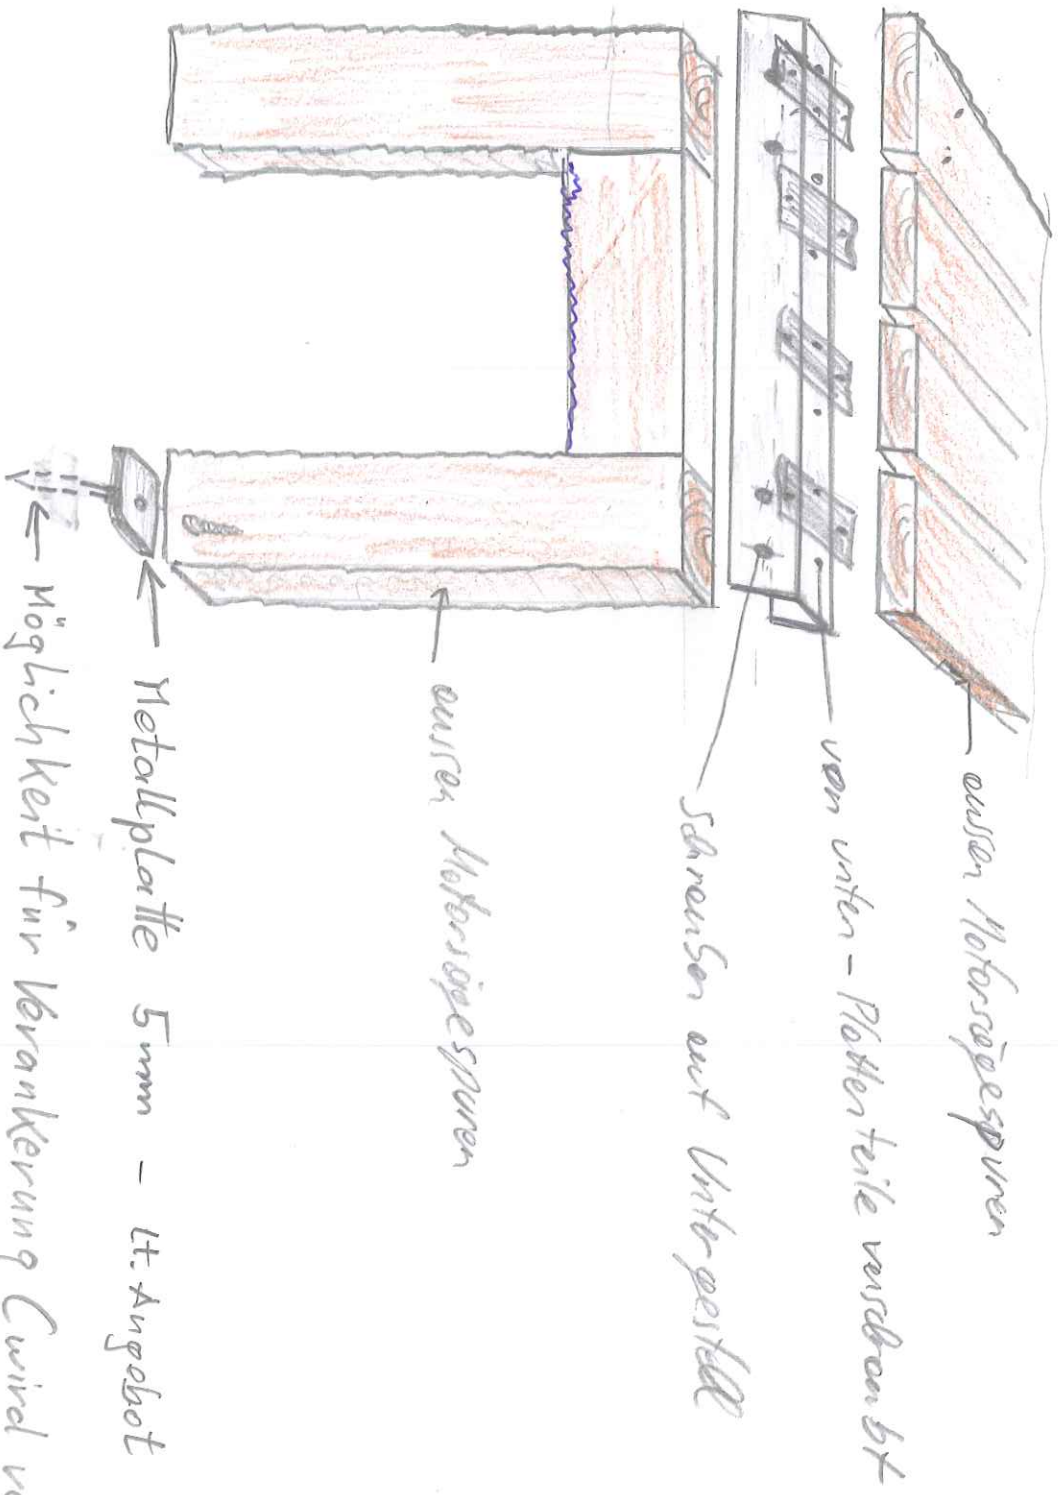 aussen Motorsägespuren
von unten - Plattenteile verschraubt
schrauben auf Untergestell
aussen Motorsägespuren
Metallplatte 5mm - lt. Angebot
Möglichkeit für Verankerung (wird